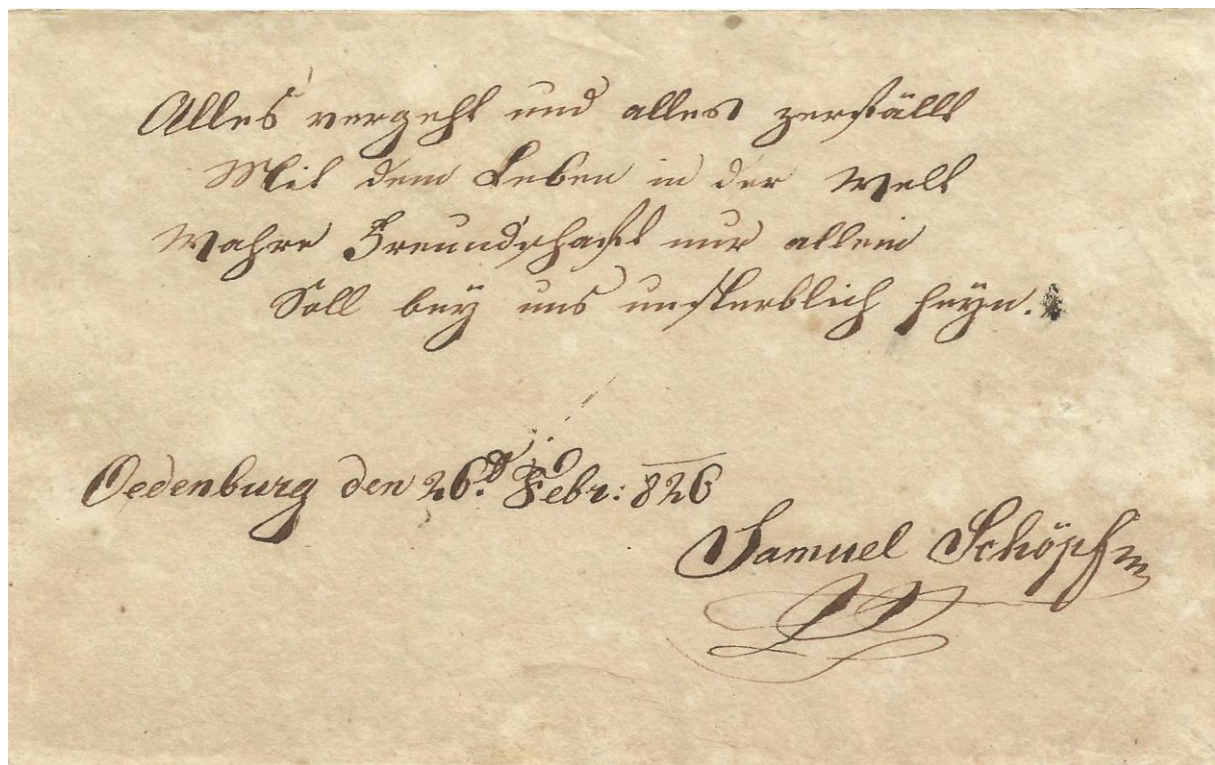 Alles vergeht und alles zerfällt
Mit dem Leben in der Welt
Wahre Freundschaft nur allein
Soll bey uns unsterblich seyn.
Oedenburg den 26.t Febr: 826
Samuel Schöpf m